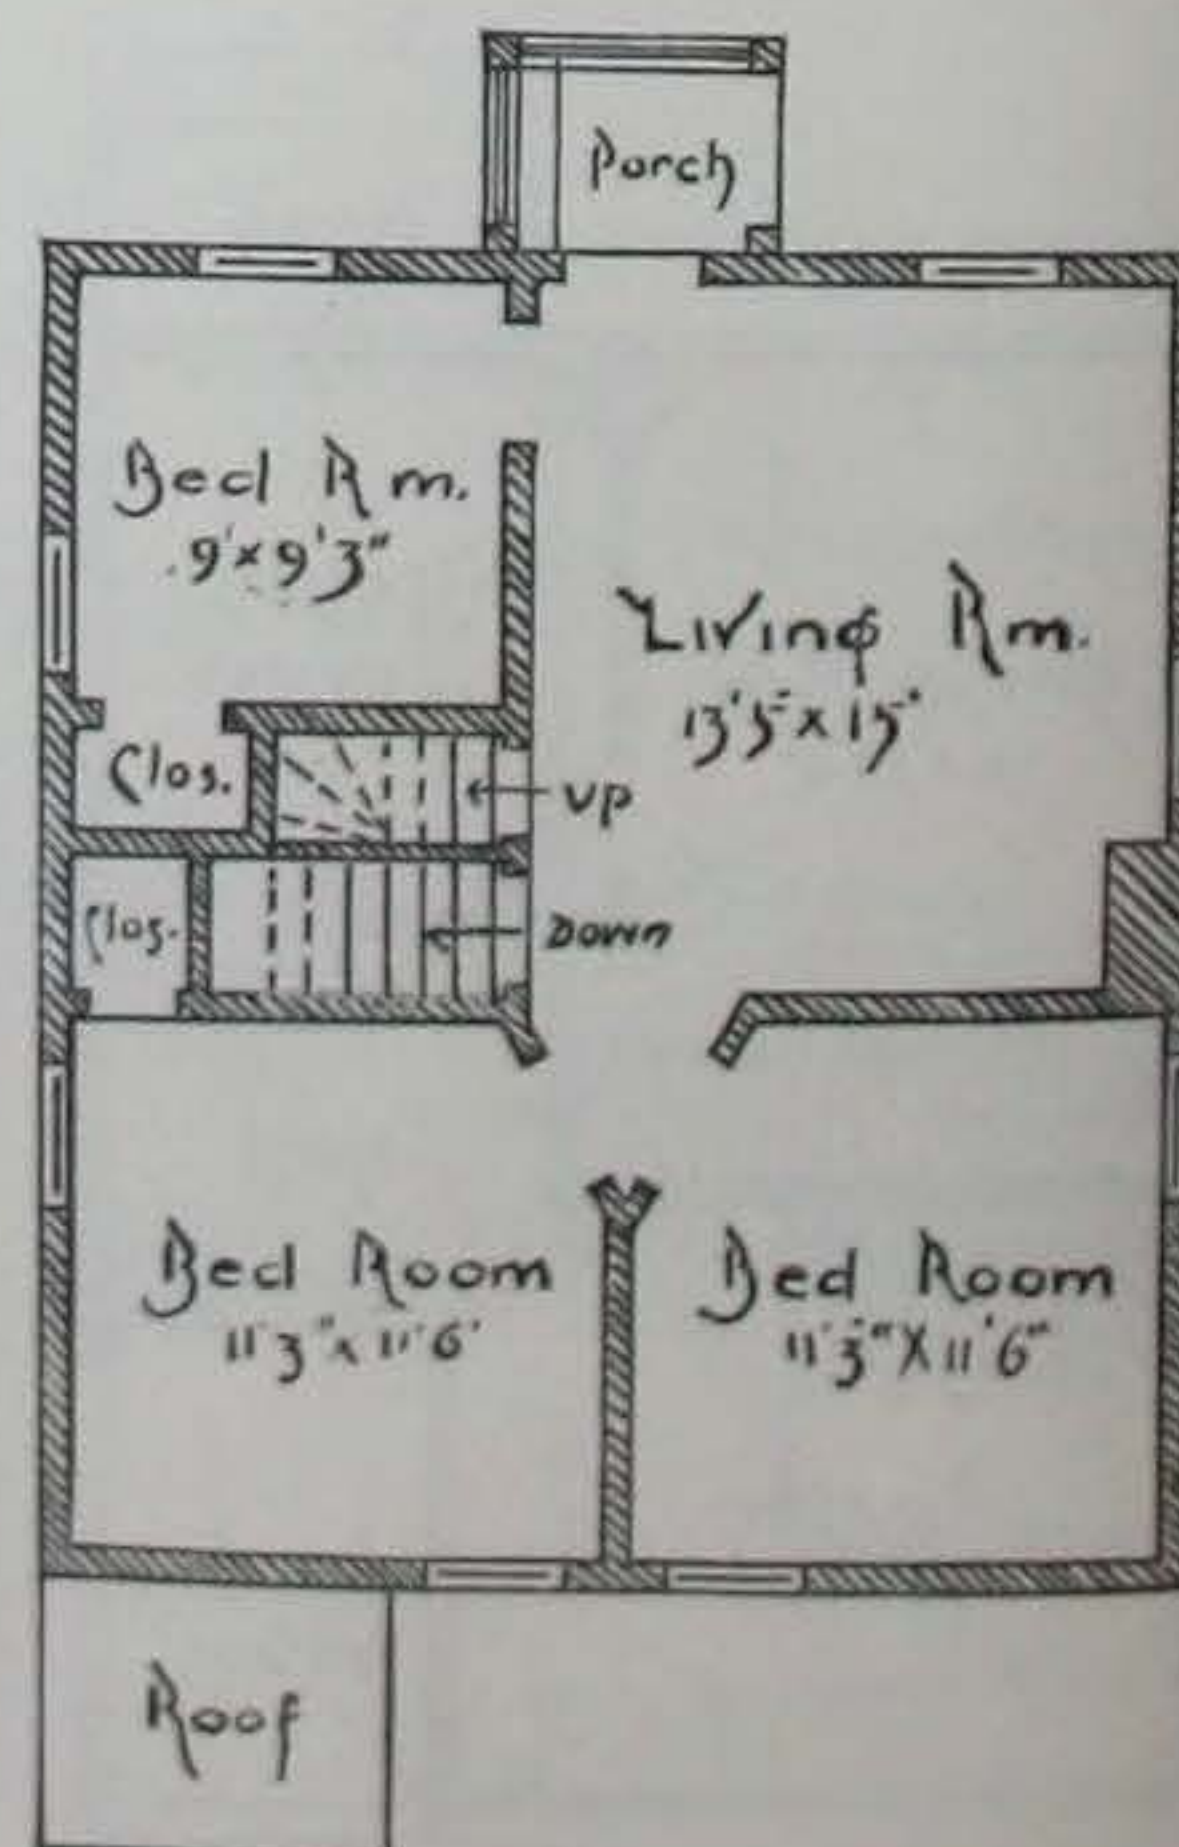 Porch
Bed Rm.
9'x 9'3"
Living Rm.
13'5" x 15'
Clos.
UP
Clos.
DOWN
Bed Room
11'3" x 11'6"
Bed Room
11'3" X 11'6"
Roof